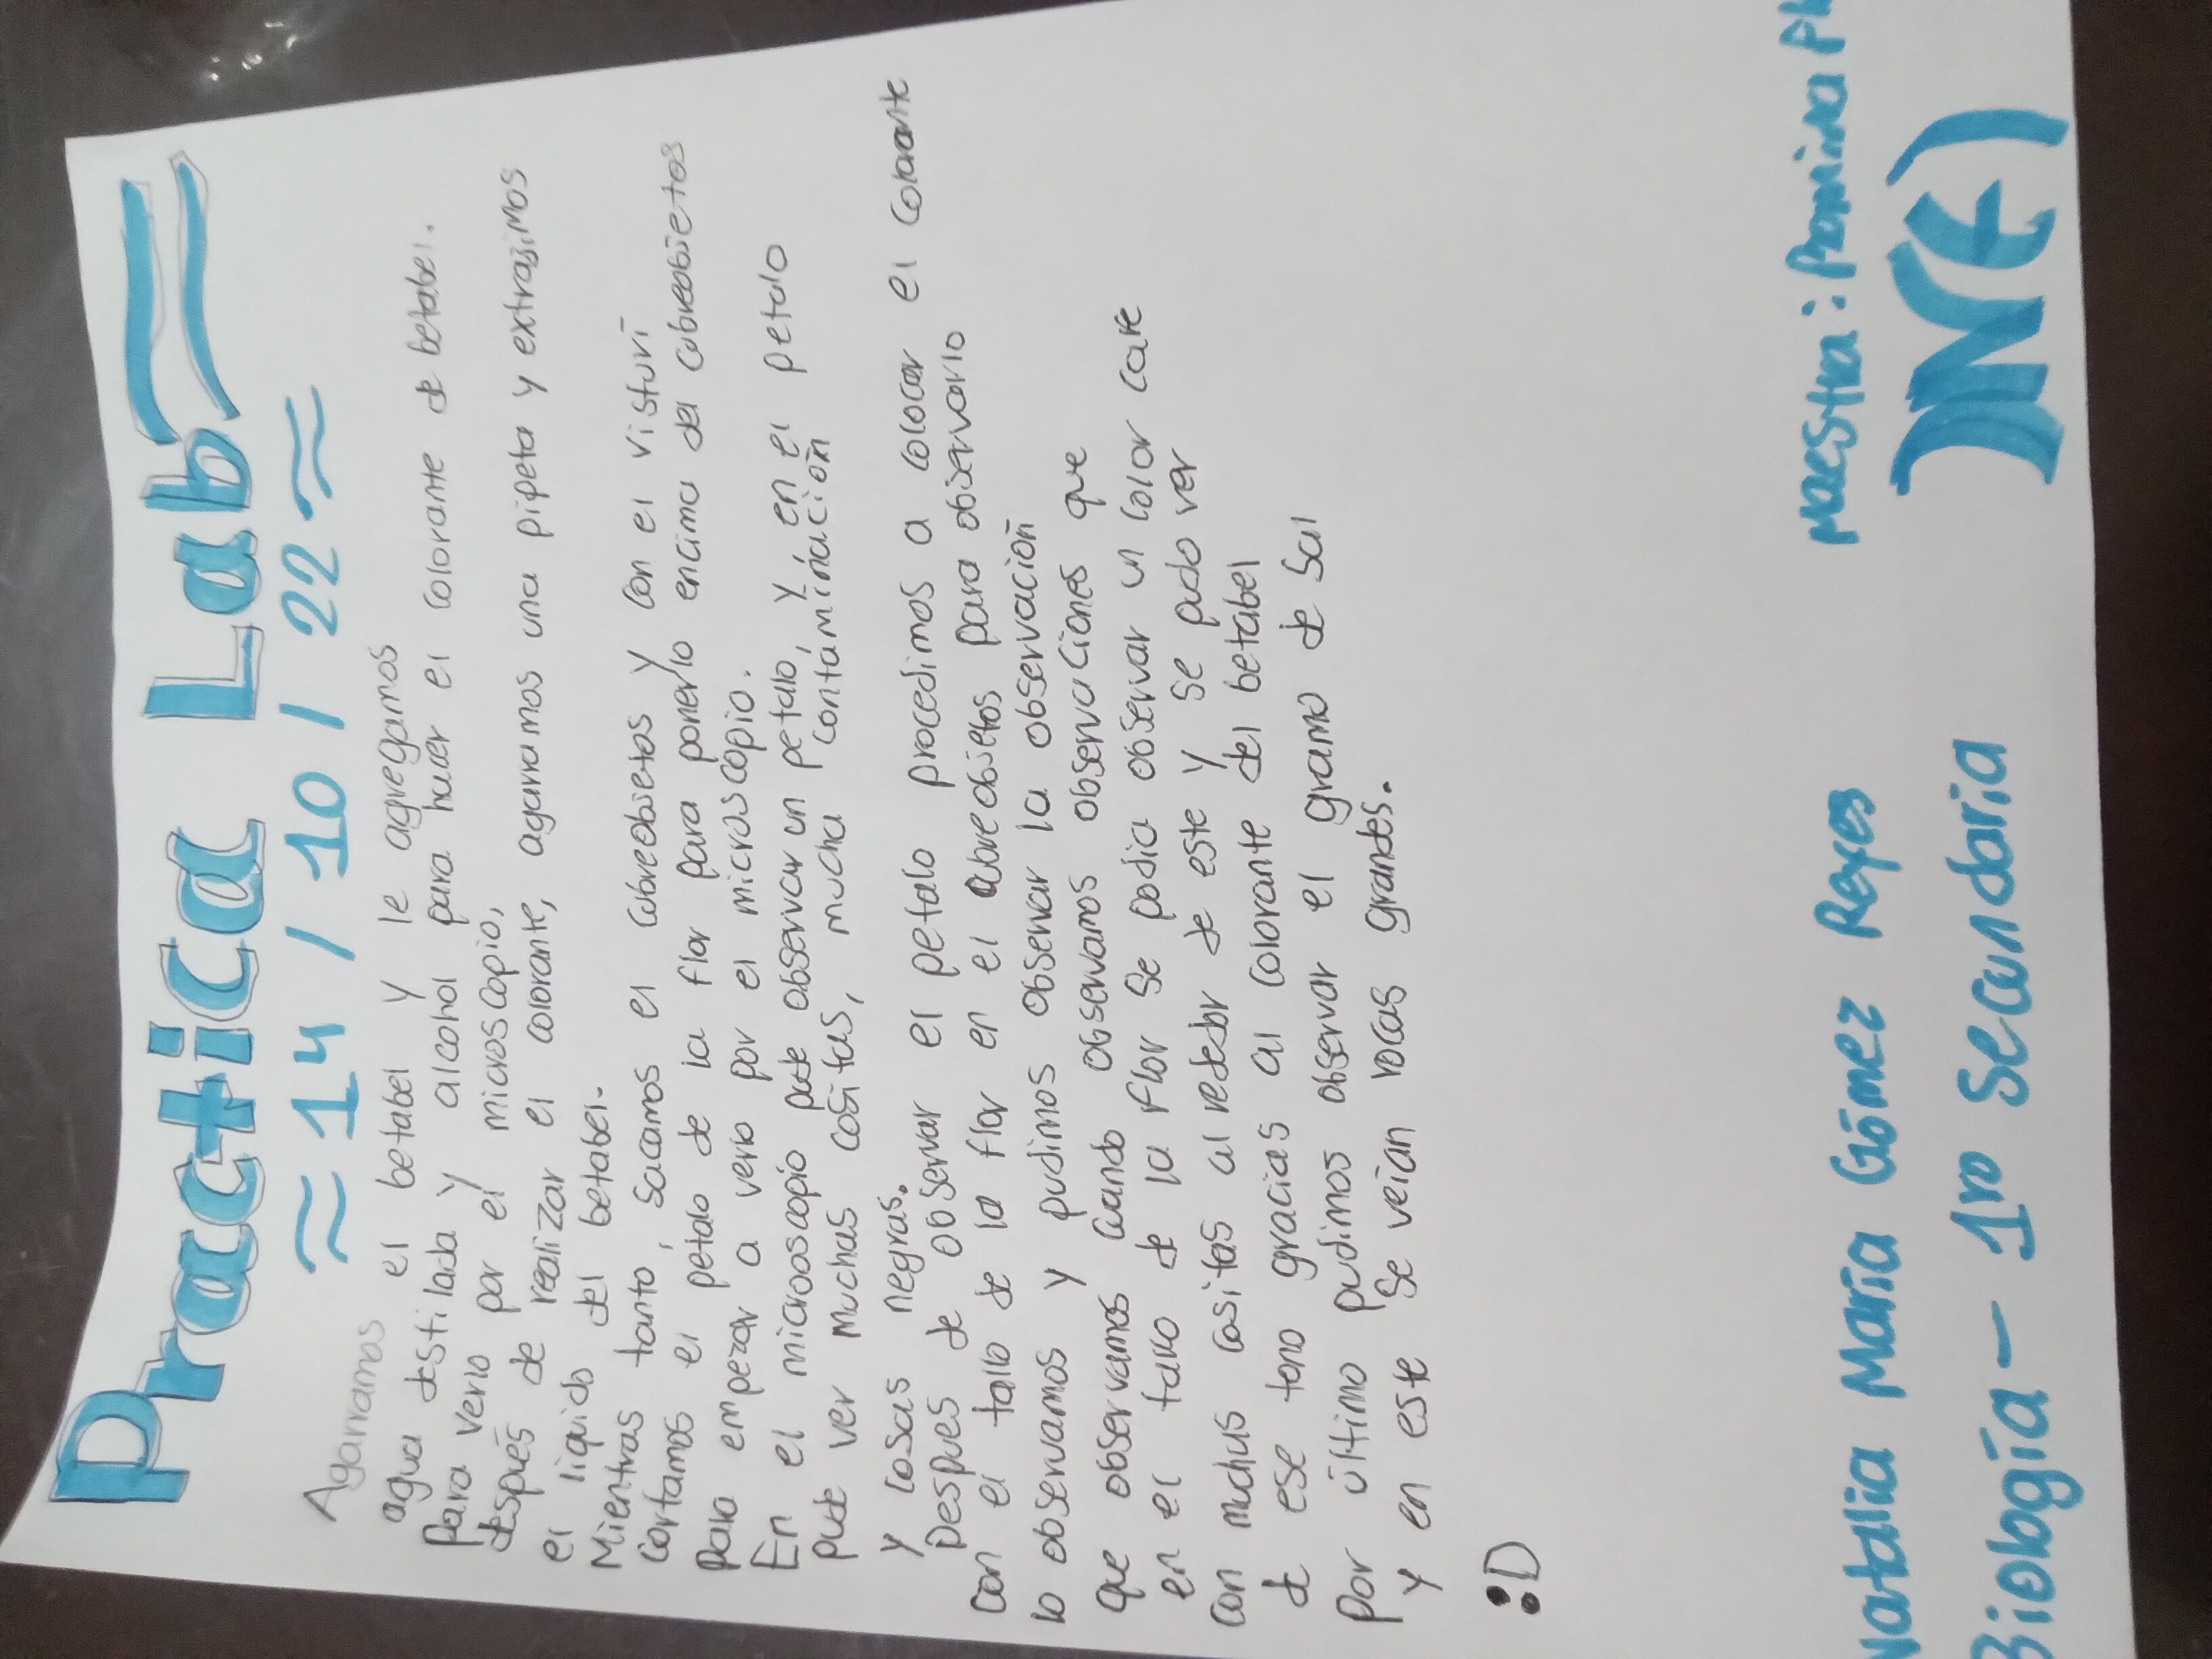 Practica Lab
≈ 14 / 10 / 22 ≈
Agarramos el betabel y le agregamos
agua destilada y alcohol para hacer el colorante de betabel.
Para verlo por el microscopio,
después de realizar el colorante, agarramos una pipeta y extrajimos
el liquido del betabel.
Mientras tanto, sacamos el cubreobjetos y con el visturí
cortamos el petalo de la flor para ponerlo encima del cubreobjetos
para empezar a verlo por el microscopio.
En el microoscopio pude observar un petalo, y en el petalo
pude ver muchas cositas, mucha contaminación
y cosas negras.
Despues de observar el petalo procedimos a colocar el colorante
con el tallo de la flor en el cubreobjetos para observarlo
lo observamos y pudimos observar la observación
que observamos cuando observamos observaciones que
en el tallo de la flor se podia observar un color cafe
con muchas cositas al rededor de este y se pudo ver
de ese tono gracias al colorante del betabel
Por último pudimos observar el gramo de sal
y en este se veian rocas grandes.
:D
Natalia María Gómez Reyes maestra: Romina
Biología - 1ro Secundaria